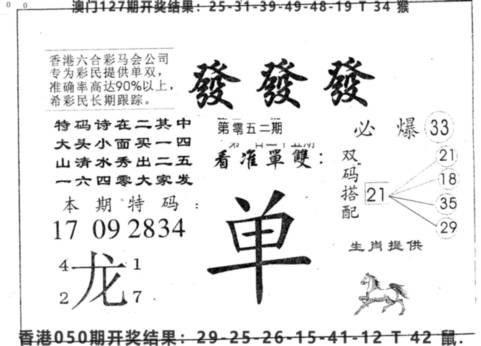 澳门127期开奖结果：25-31-39-49-48-19 T 34 猴
香港六合彩马会公司
专为彩民提供单双，
准确率高达90%以上，
希彩民长期跟踪。
發 發 發
特码诗在二其中
大头小面买一四
山清水秀出二五
一六四零大家发
第零五二期
看准單雙：
必爆 33
双码搭配 21
21
18
35
29
本期特码：
17 09 28 34
单
4 龙 1
2 7
生肖提供
香港050期开奖结果：29-25-26-15-41-12 T 42 鼠.